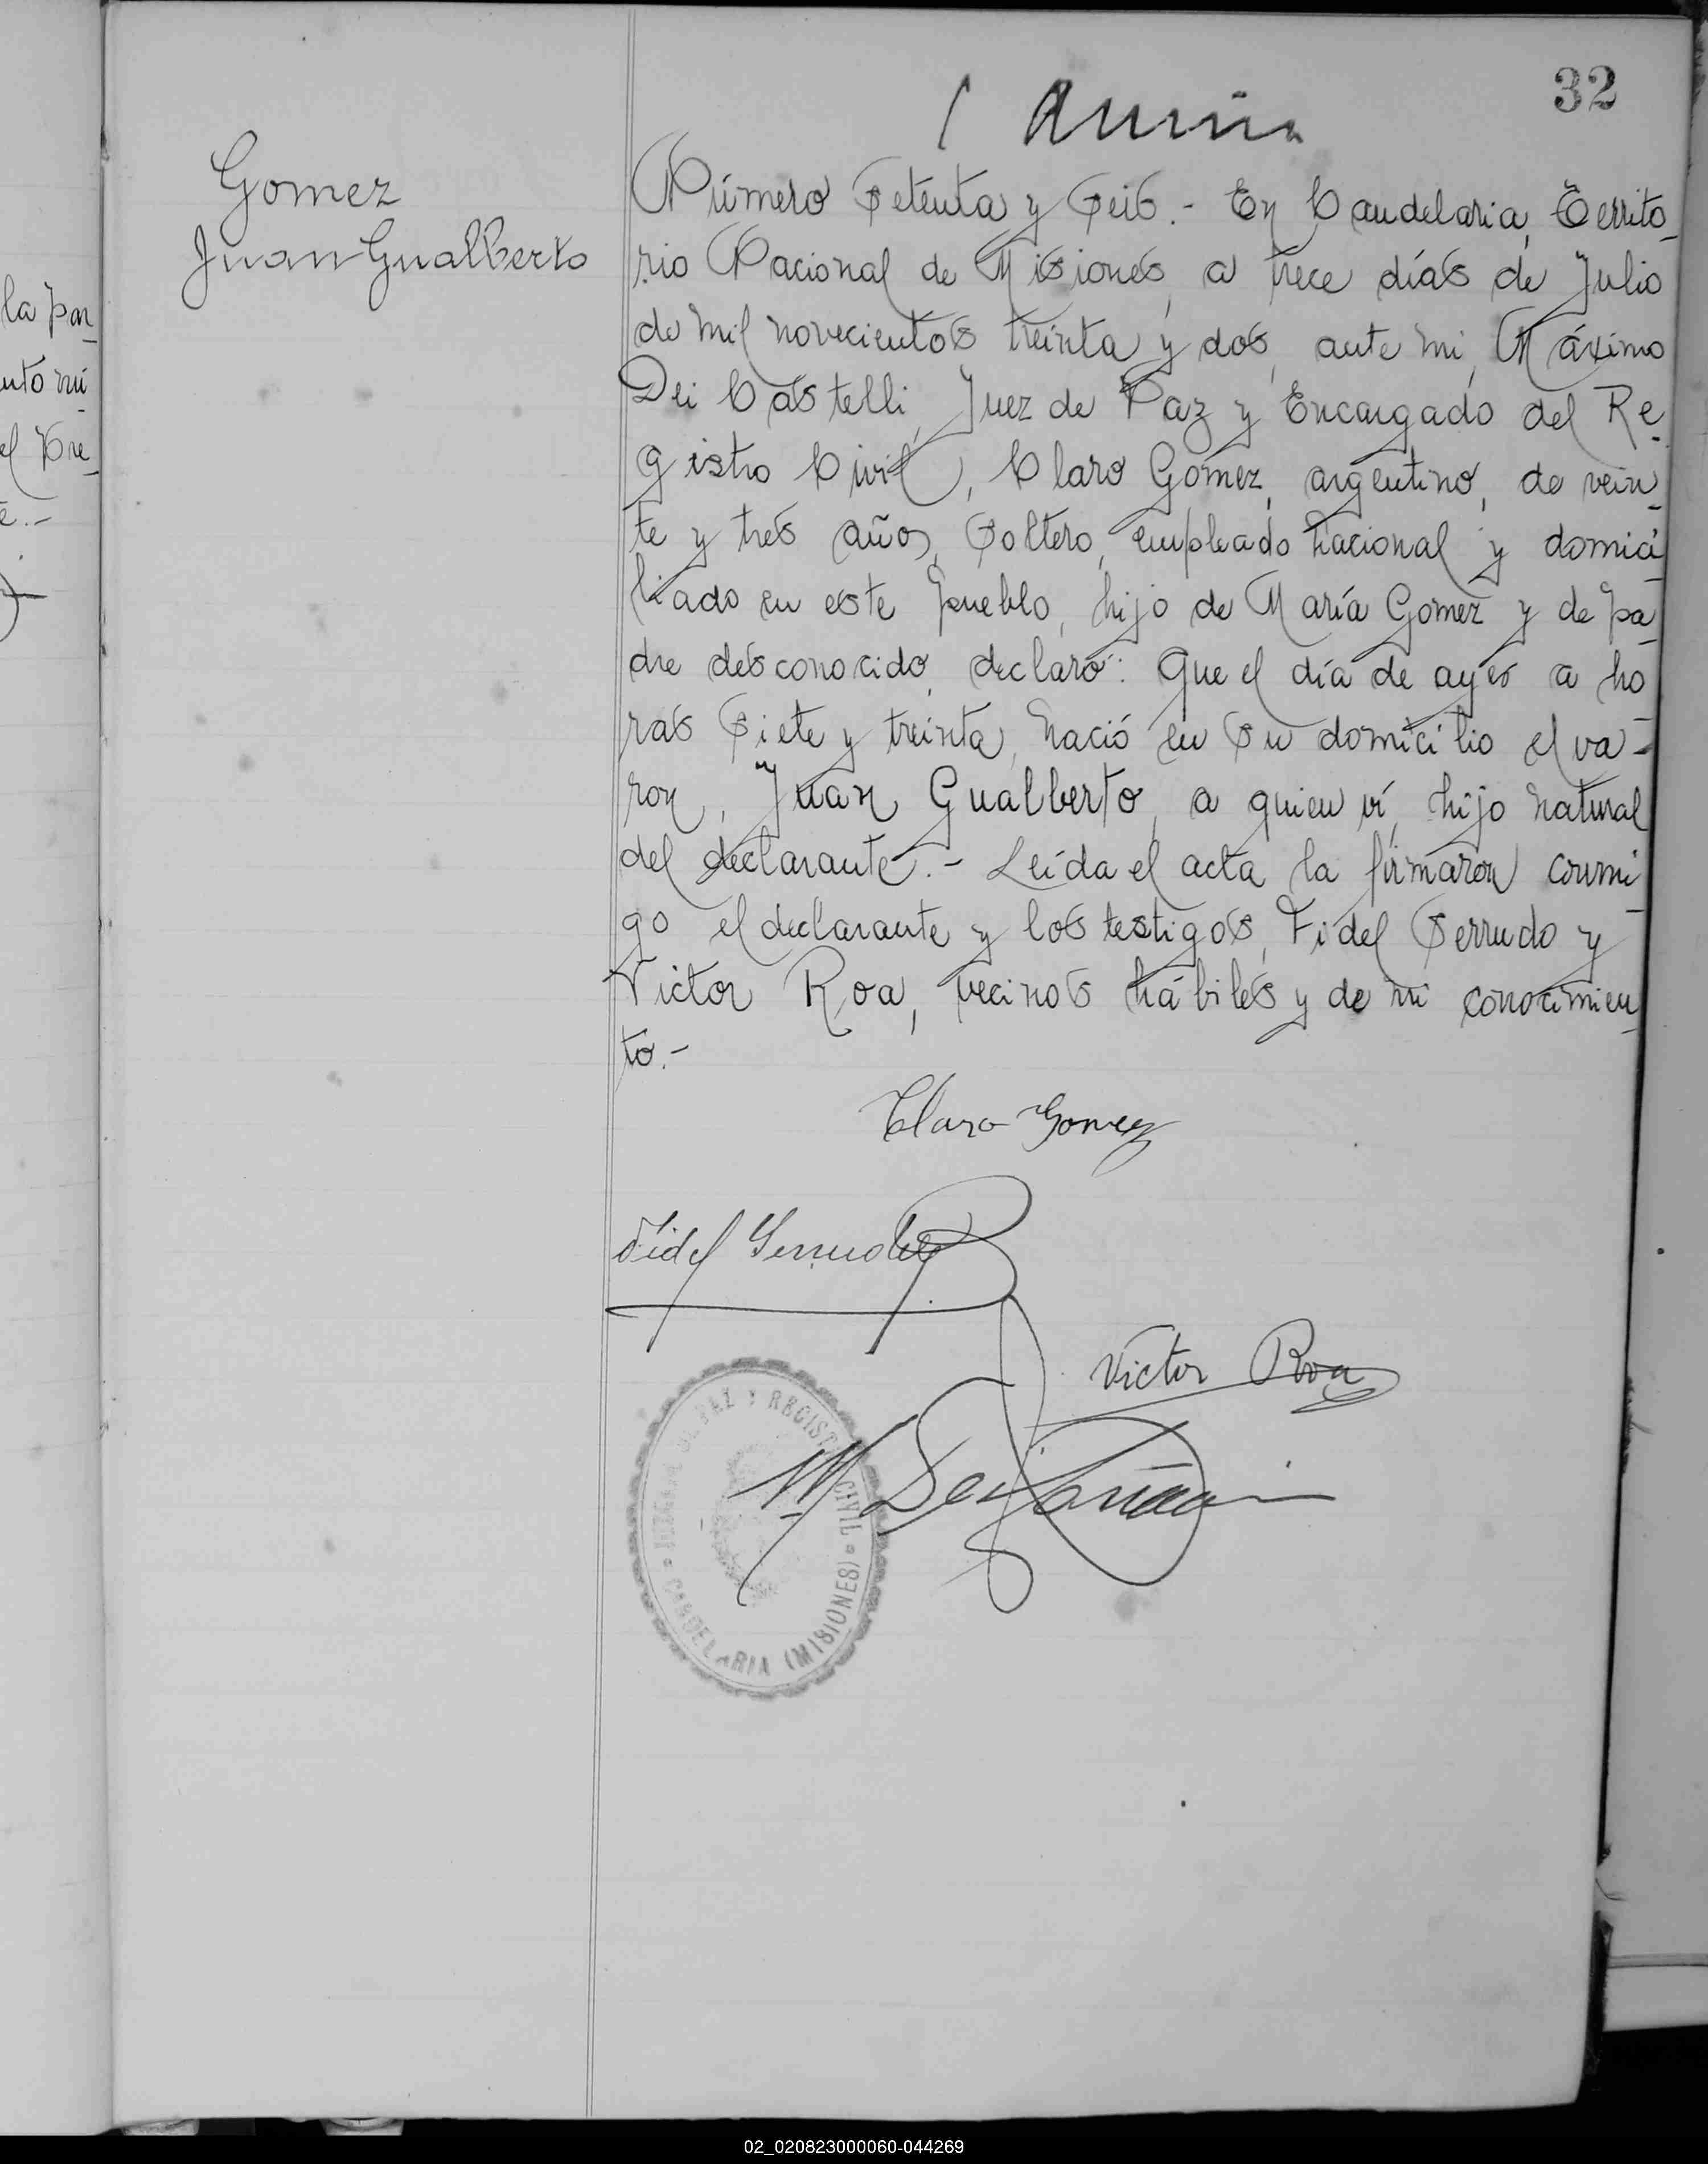 32
Gomez
Juan Gualberto
Número Setenta y Seis.- En Candelaria, Territo_
rio Nacional de Misiones, a trece días de Julio
de mil novecientos treinta y dos, ante mi, Máximo
Dei Castelli, Juez de Paz y Encargado del Re_
gistro Civil, Claro Gomez, argentino, de vein_
te y tres años, Soltero, empleado nacional y domici_
liado en este pueblo, hijo de María Gomez y de pa_
dre desconocido, declaró: Que el día de ayer a ho_
ras Siete y treinta, nació en Su domicilio el va_
ron, Juan Gualberto, a quien ví, hijo natural
del declarante.- Leída el acta la firmaron conmi_
go el declarante y los testigos, Fidel Serrudo y
Victor Roa, vecinos hábiles y de mi conocimien_
to.-
Claro Gomez
Fidel Serrudo
Victor Roa
REGIST CIVIL
CANDELARIA (MISIONES)
la par_
nto mi_
el Pre_
e.-
02_020823000060-044269